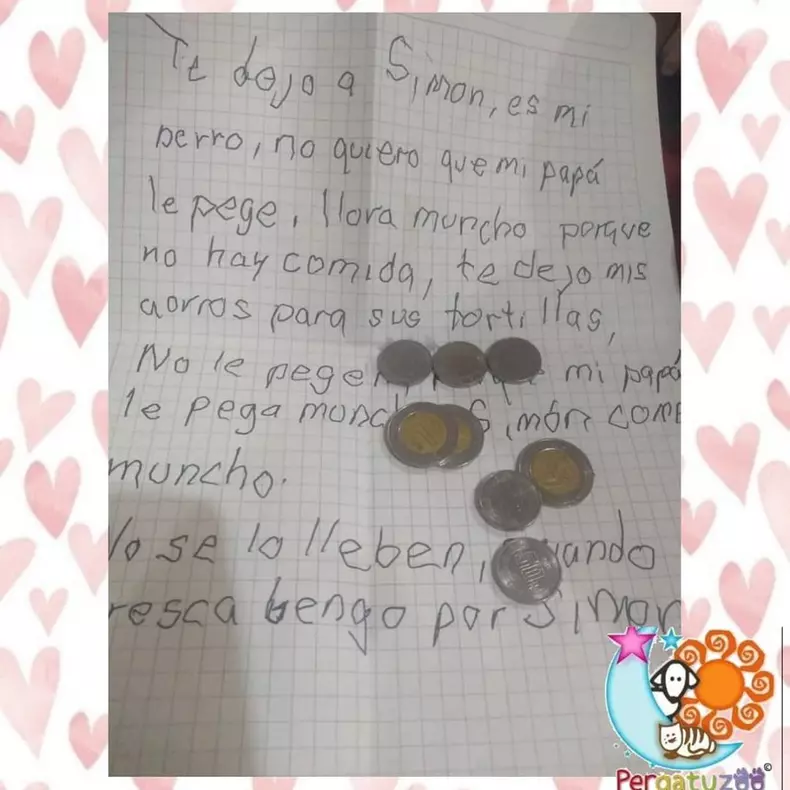 Te dejo a Simon, es mi
perro, no quiero que mi papá
le pege, llora muncho porque
no hay comida, te dejo mis
aorros para sus tortillas,
No le pegen mi papá
le pega muncho Simón come
muncho.
No se lo lleben, cuando
resca bengo por Simon
Pergatuzoo©